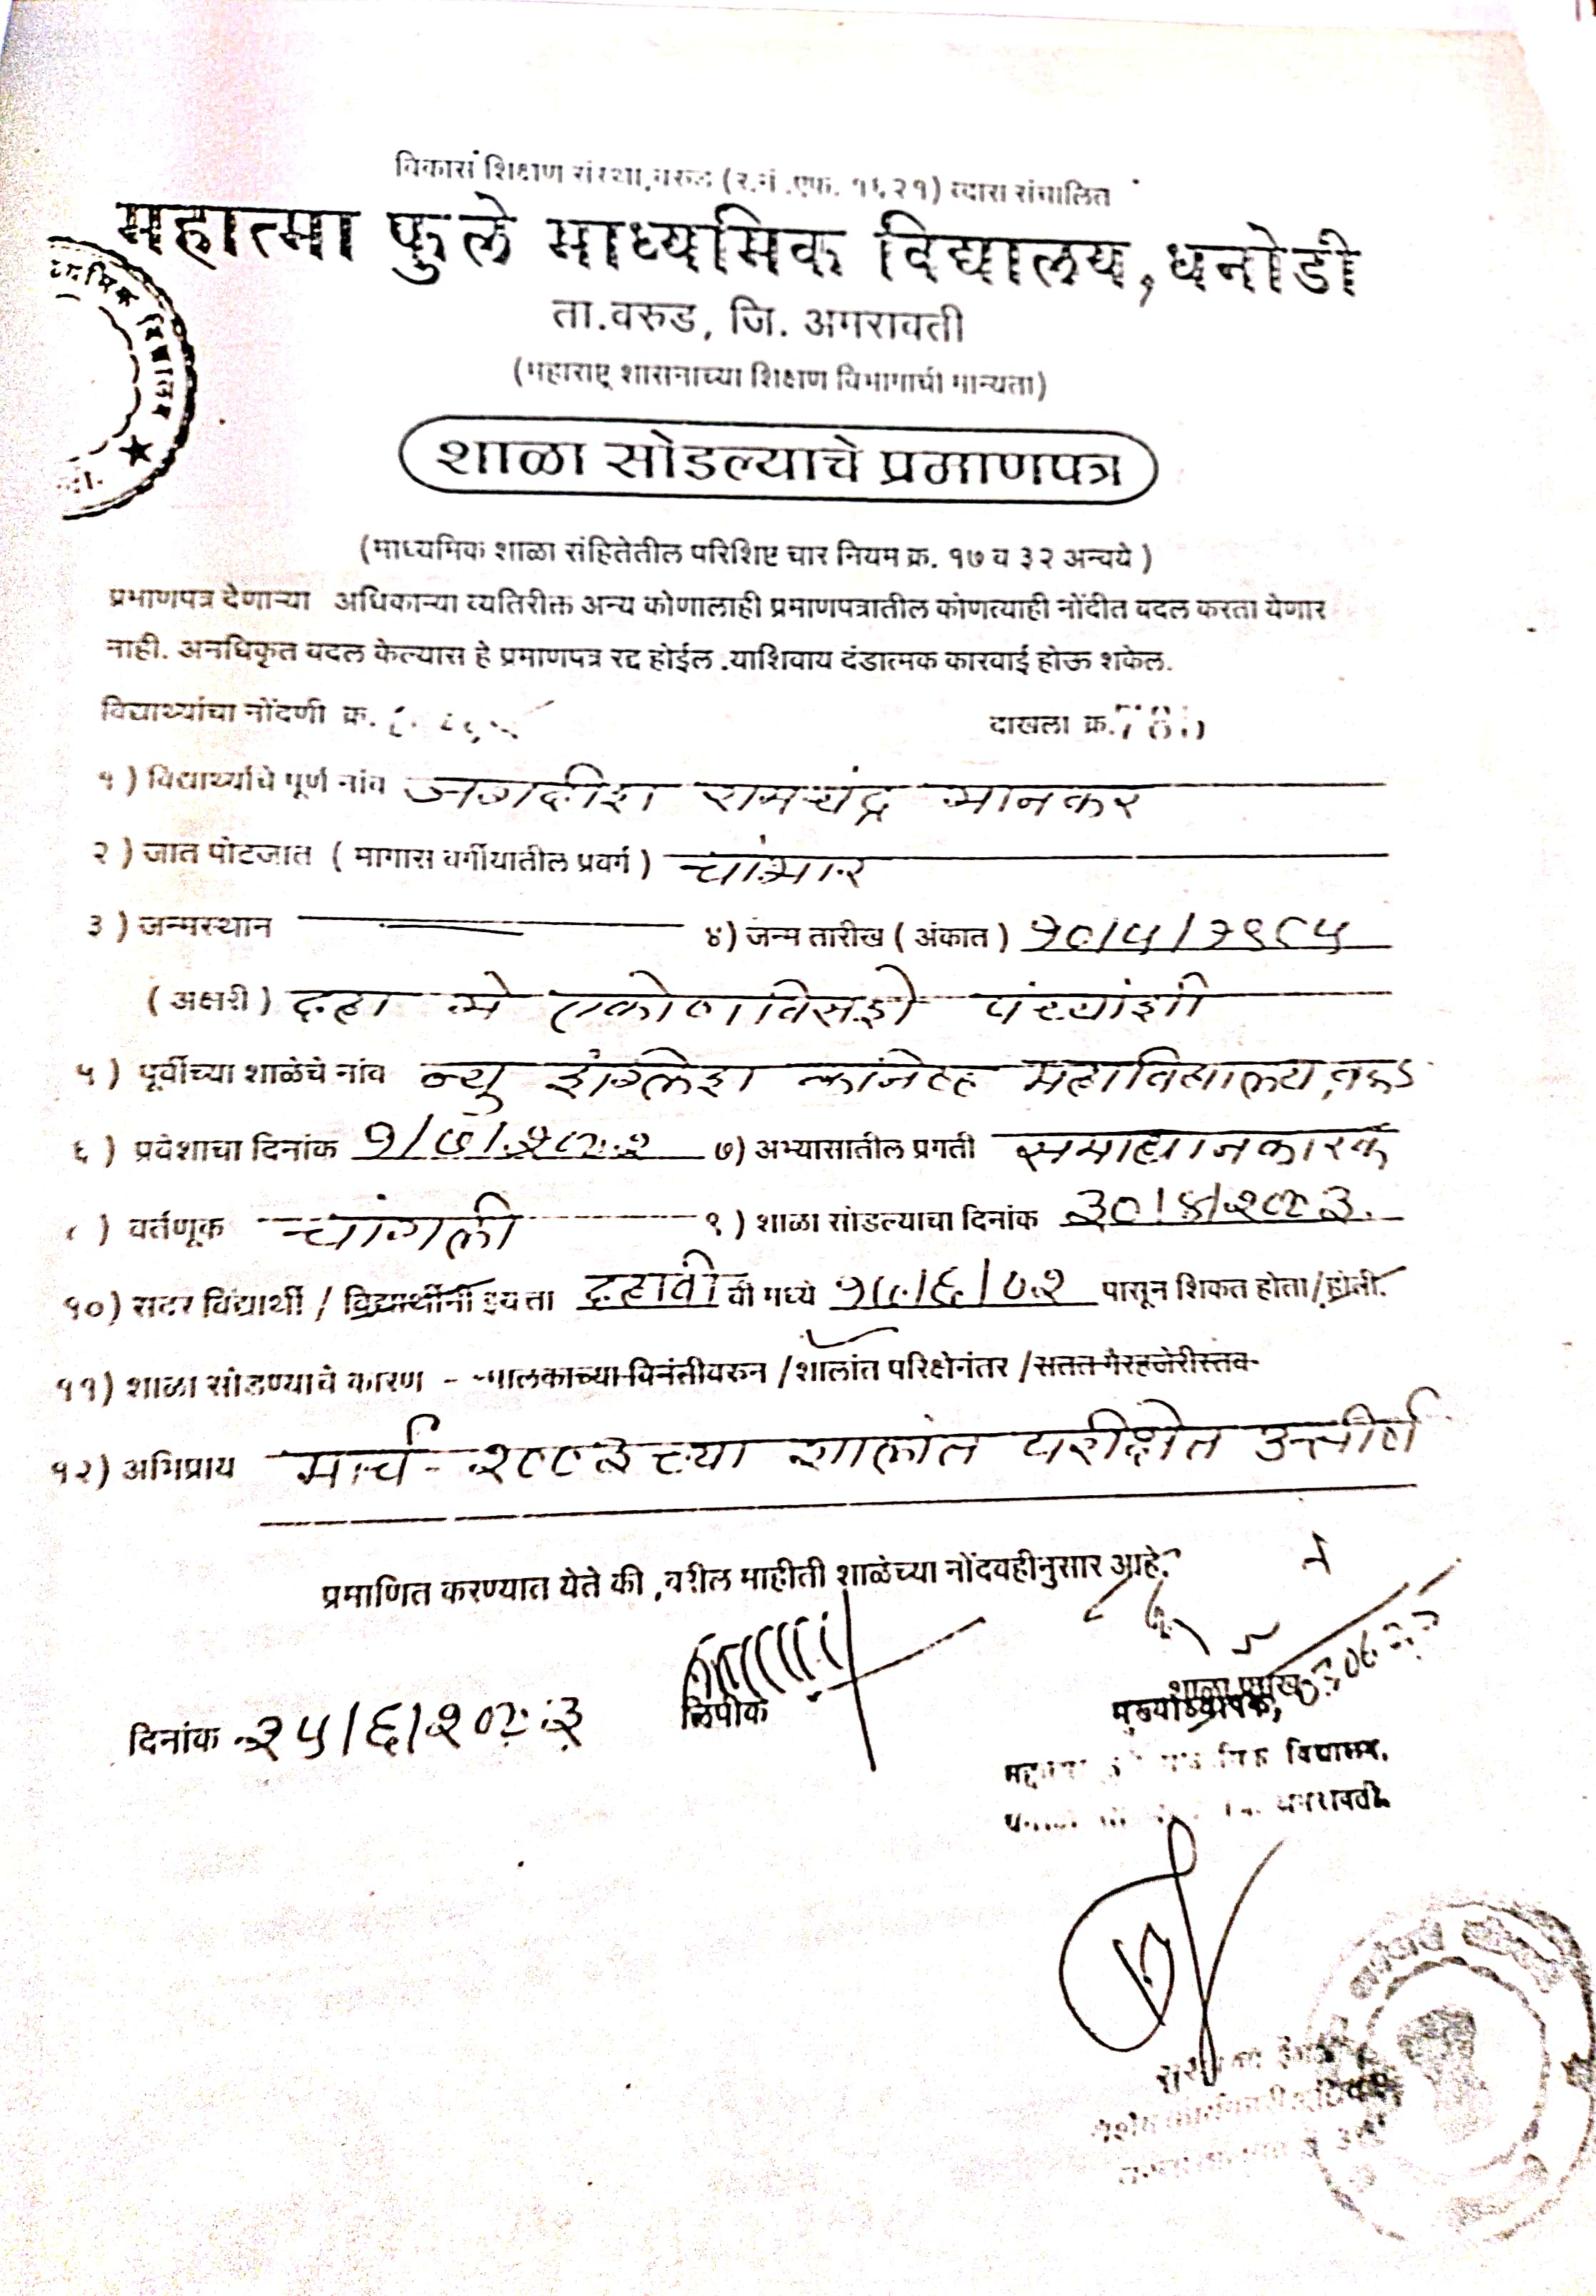 विकास शिक्षण संस्था,वरुड (र.नं.एफ. १६२१) व्दारा संचालित
महात्मा फुले माध्यमिक विद्यालय, धनोडी
ता.वरुड, जि. अमरावती
(महाराष्ट्र शासनाच्या शिक्षण विभागाची मान्यता)
शाळा सोडल्याचे प्रमाणपत्र
(माध्यमिक शाळा संहितेतील परिशिष्ट चार नियम क्र. १७ व ३२ अन्वये )
प्रमाणपत्र देणाऱ्या अधिकाऱ्या व्यतिरीक्त अन्य कोणालाही प्रमाणपत्रातील कोणत्याही नोंदीत बदल करता येणार
नाही. अनधिकृत बदल केल्यास हे प्रमाणपत्र रद्द होईल .याशिवाय दंडात्मक कारवाई होऊ शकेल.
विद्यार्थ्यांचा नोंदणी क्र. दाखला क्र.
१ ) विद्यार्थ्याचे पूर्ण नांव जगदीश रामचंद्र मानकर
२ ) जात पोटजात ( मागास वर्गीयातील प्रवर्ग ) चांभार
३ ) जन्मस्थान ४) जन्म तारीख ( अंकात ) १०/५/१९८५
( अक्षरी ) दहा मे एकोणविसशे पंच्यांशी
५ ) पूर्वीच्या शाळेचे नांव न्यु इंग्लिश कॉनिष्ठ महाविद्यालय, वरुड
६ ) प्रवेशाचा दिनांक १/७/२००२ ७) अभ्यासातील प्रगती समाधानकारक
८ ) वर्तणूक चांगली ९ ) शाळा सोडल्याचा दिनांक ३०/४/२००३
१०) सदर विद्यार्थी / विद्यार्थीनी इयत्ता दहावी वी मध्ये पासून शिकत होता/होती.
११) शाळा सोडण्याचे कारण - पालकाच्या विनंतीवरुन / शालांत परिक्षेनंतर / सतत गैरहजेरीस्तव
१२) अभिप्राय मार्च - २००३ च्या शालांत परीक्षेत उत्तीर्ण
प्रमाणित करण्यात येते की ,वरील माहीती शाळेच्या नोंदवहीनुसार आहे.
दिनांक २५/६/२००३ लिपीक शाळा प्रमुख
मुख्याध्यापक,
विद्यालय,
अमरावती.